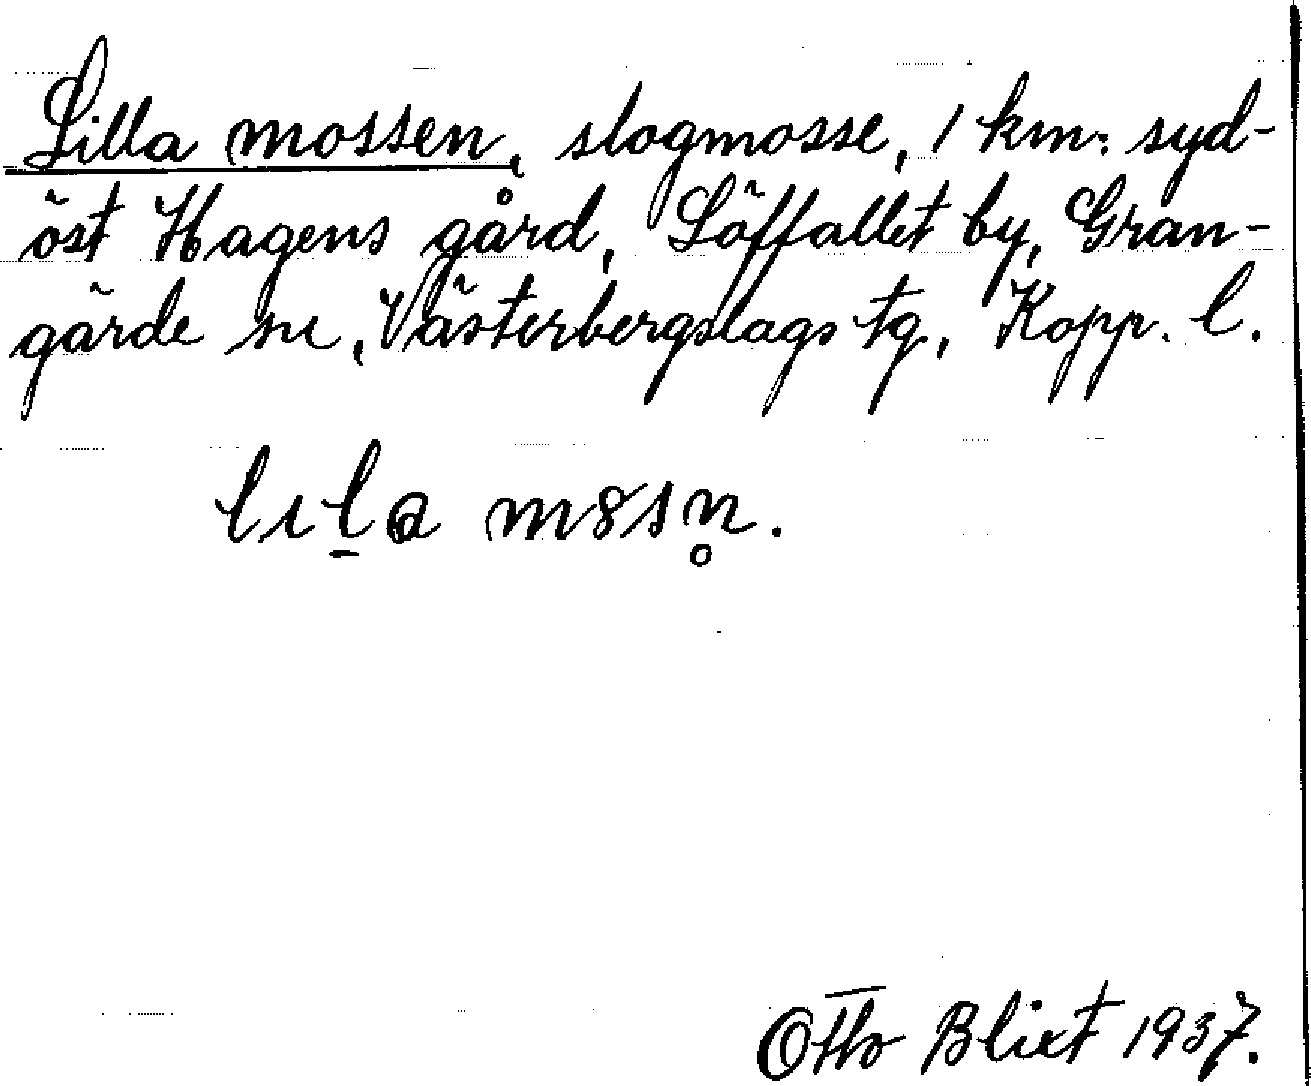 Lilla mossen, slogmosse, 1 km. syd-
öst Hagens gård, Löffallet by, Gran-
gärde sn, Västerbergslags tg, Kopp. l.
lıḻa m8sn̥.
Otto Blixt 1937.